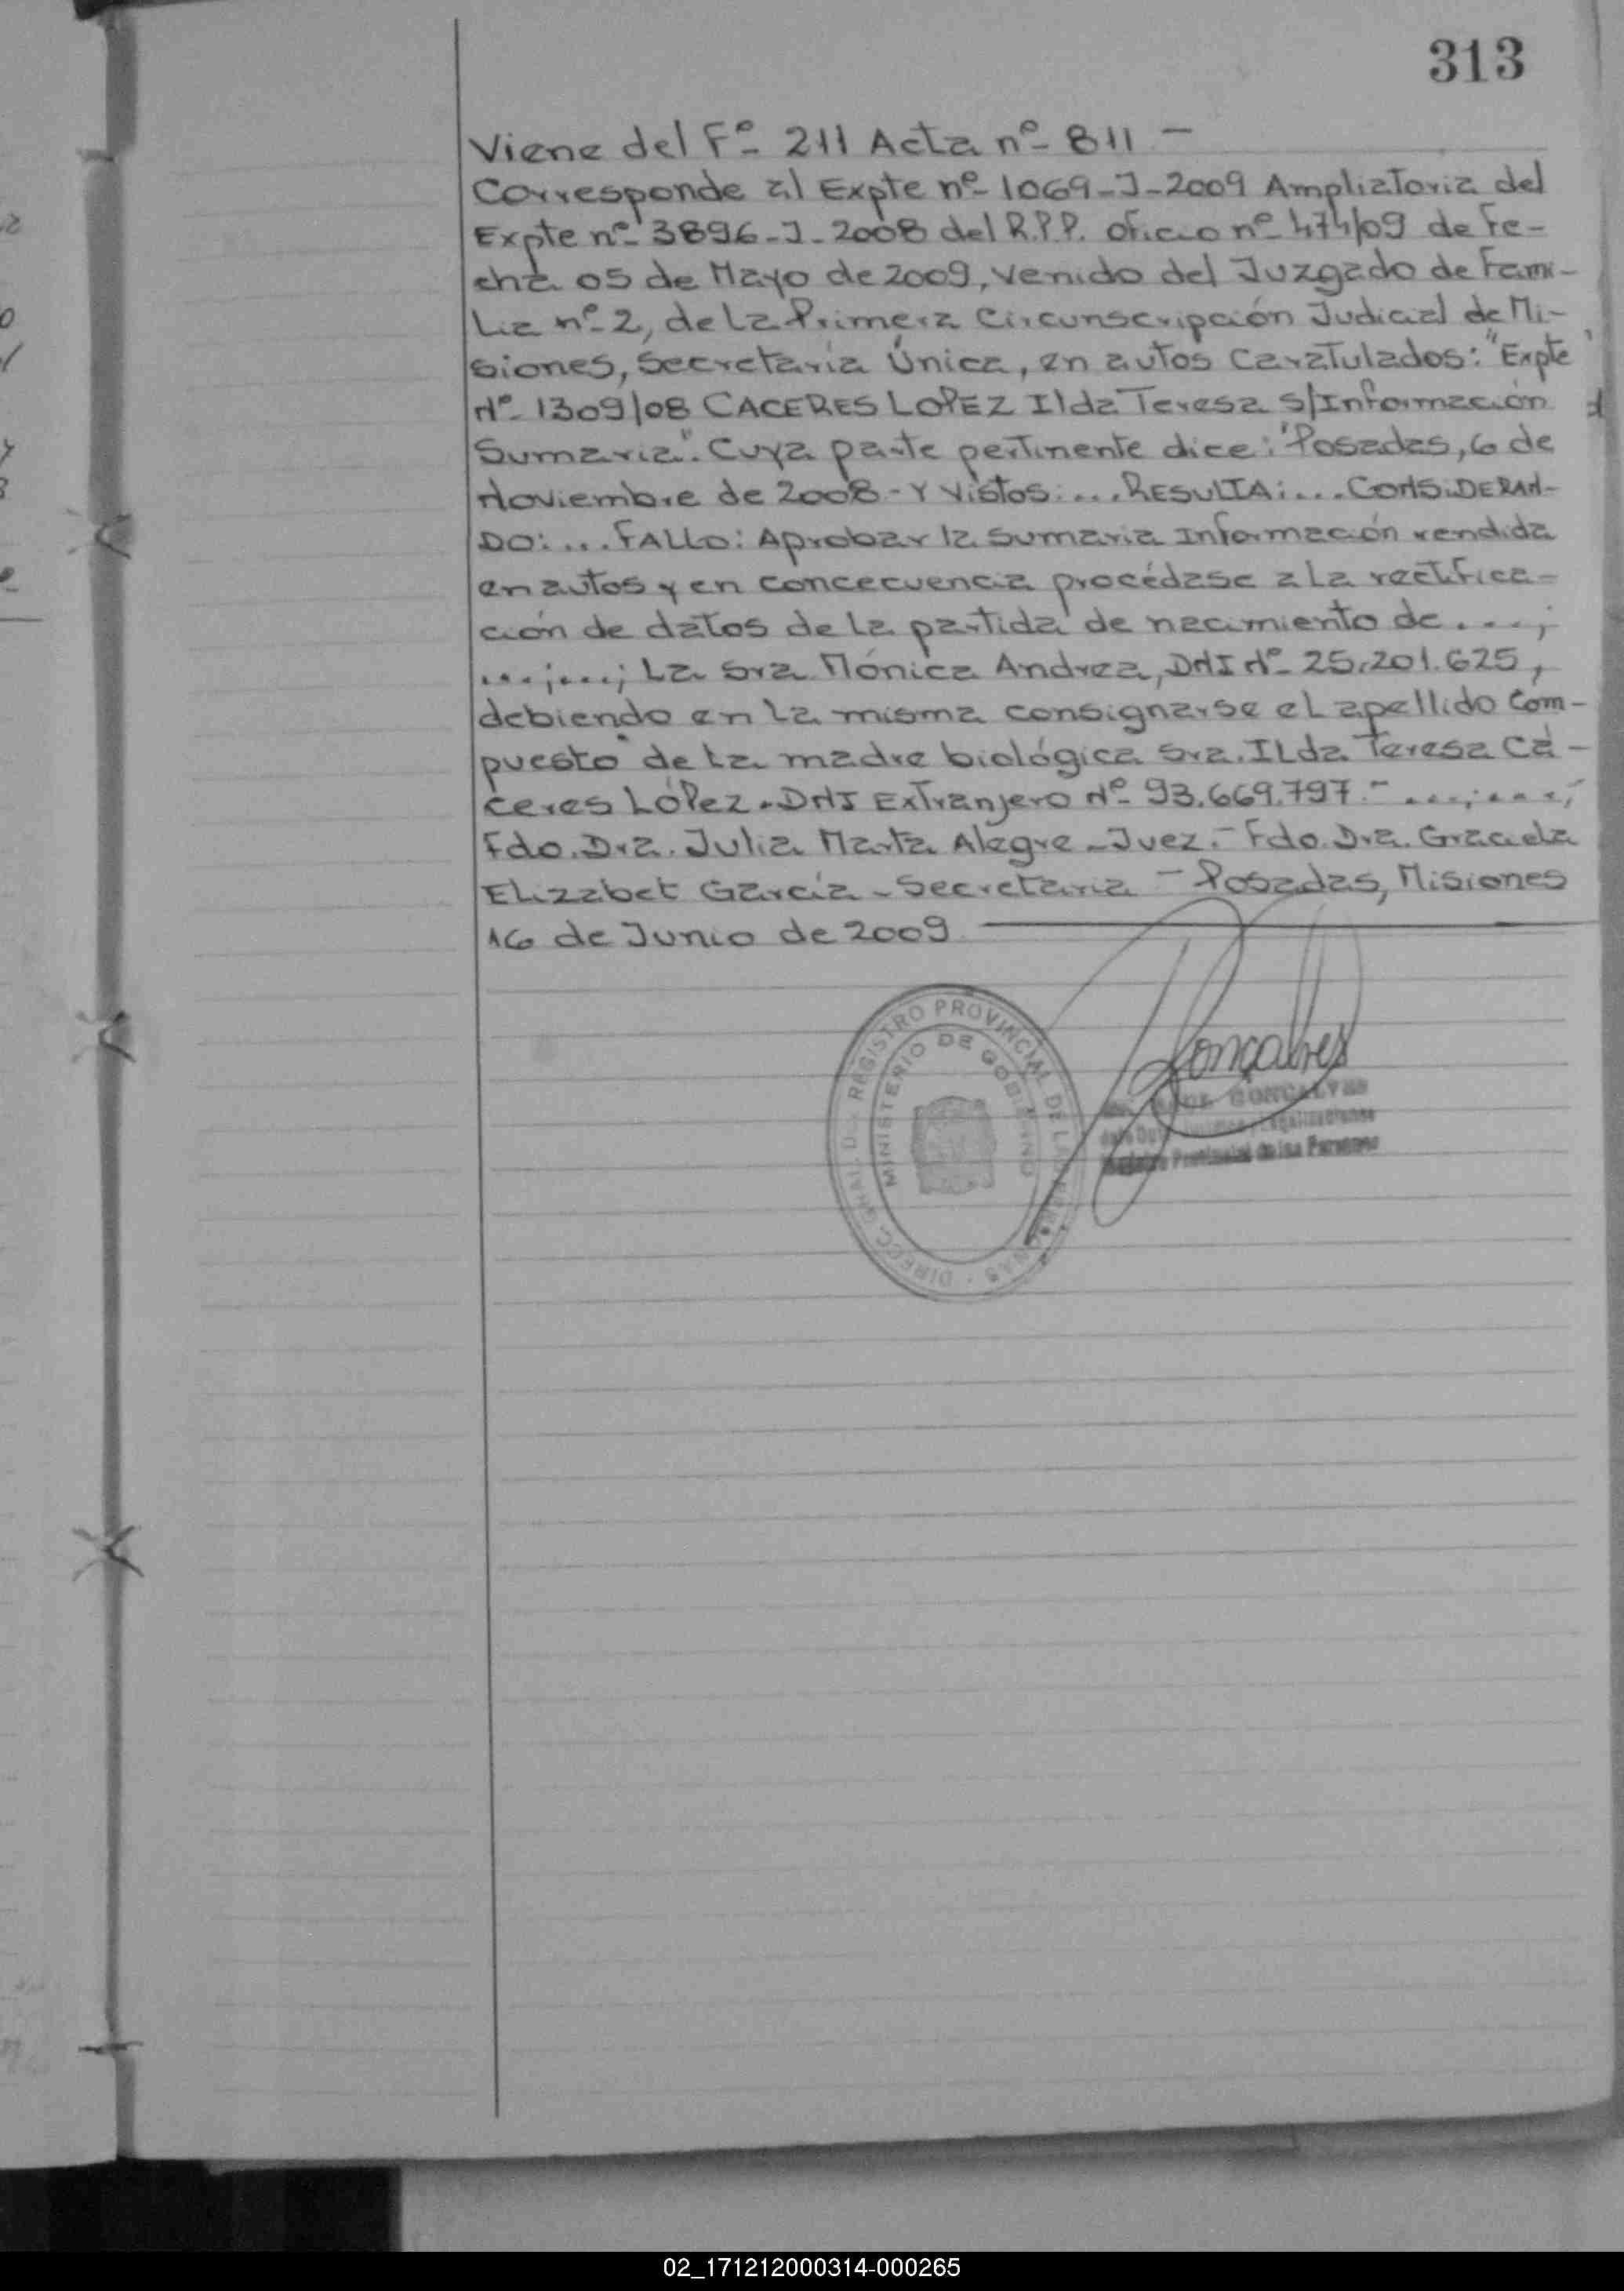 313
Viene del Fº- 211 Acta nº- 811 -
Corresponde al Expte nº- 1069-J-2009 Ampliatoria del
Expte nº- 3896-J-2008 del R.P.P. oficio nº 474/09 de Fe-
cha 05 de Mayo de 2009, venido del Juzgado de Fami-
lia nº-2, de la Primera Circunscripción Judicial de Mi-
siones, Secretaría Única, en autos Caratulados: "Expte
Nº- 1309/08 CACERES LOPEZ Ilda Teresa S/Información
Sumaria". Cuya parte pertinente dice: "Posadas, 6 de
Noviembre de 2008 - Y Vistos: ... RESULTA: ... CONSIDERAN-
DO: ... FALLO: Aprobar la Sumaria Información rendida
en autos y en concecuencia procédase a la rectifica-
ción de datos de la partida de nacimiento de ...;
...;...; La Sra Mónica Andrea, DNI Nº- 25.201.625,
debiendo en la misma consignarse el apellido Com-
puesto de la madre biológica Sra. Ilda Teresa Cá-
ceres López. DNI Extranjero Nº- 93.669.797.- ...;...;
Fdo. Dra. Julia Marta Alegre - Juez.- Fdo. Dra. Graciela
Elizabet García - Secretaria - Posadas, Misiones
16 de Junio de 2009
DIRECC. GRAL. D. REGISTRO PROVINCIAL DE LAS PERSONAS
MINISTERIO DE GOBIERNO
Gonçalves
GONÇALVES
Registro Provincial de las Personas
02_171212000314-000265